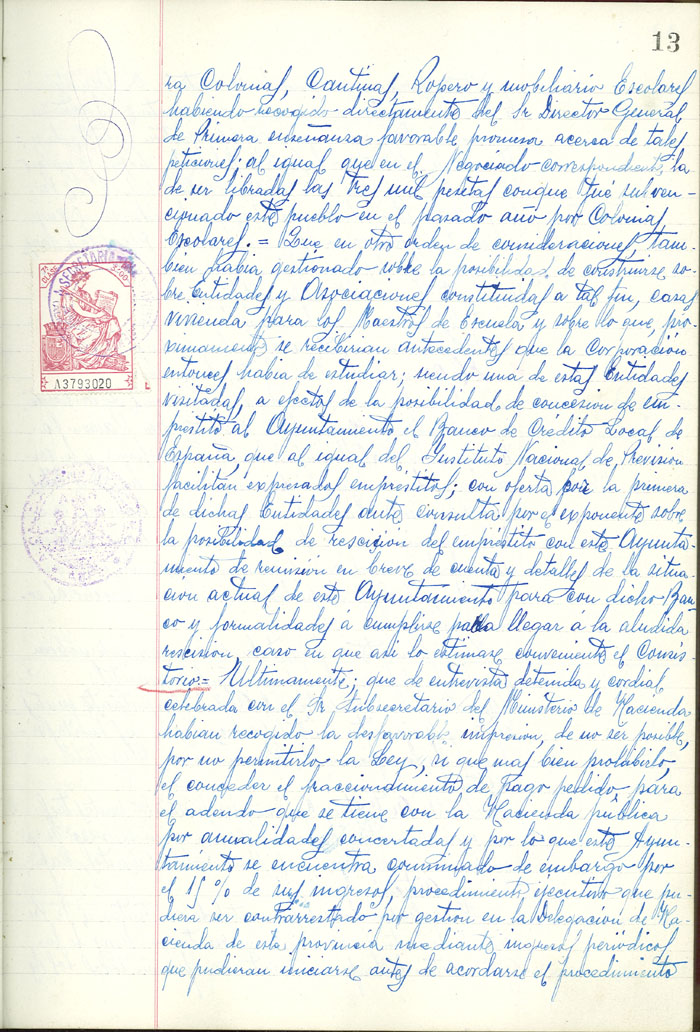 13
ra Colonias, Cantinas, Ropero y mobiliario Escolares
habiendo recogido directamente del Sr Director General
de Primera enseñanza favorable promesa acerca de tales
peticiones; al igual que en el Negociado correspondiente, la
de ser libradas las tres mil pesetas conque fué subven-
cionado este pueblo en el pasado año por Colonias
Escolares. = Que en otro orden de consideraciones, tam-
bien habia gestionado sobre la posibilidad de construirse so-
bre Entidades y Asociaciones constituidas a tal fin, casas
vivienda para los Maestros de Escuela y sobre lo que, pro-
ximamente se recibirian antecedentes que la Corporación
entonces habia de estudiar; siendo una de estas Entidades
visitadas, a efectos de la posibilidad de concesion de em-
prestito al Ayuntamiento el Banco de Credito Local de
España que al igual del Instituto Nacional de Prevision
facilitan expresados emprestitos; con oferta por la primera
de dichas Entidades ante consulta por el exponente sobre
la posibilidad de rescision del emprestito con este Ayunta-
miento de remision en breve de cuenta y detalles de la situa-
cion actual de este Ayuntamiento para con dicho Ban-
co y formalidades a cumplirse para llegar a la aludida
rescision, caso en que asi lo estimase conveniente el Consis-
torio = Ultimamente; que de entrevista detenida y cordial
celebrada con el Sr Subsecretario del Ministerio de Hacienda
habian recogido la desfavorable impresion, de no ser posible,
por no permitirlo la Ley, si que mas bien prohibirlo,
el conceder el fraccionamiento de Pago pedido para
el adeudo que se tiene con la Hacienda pública
por anualidades concertadas y por lo que este Ayun-
tamiento se encuentra conminado de embargo por
el 15 % de sus ingresos, procedimiento ejecutivo que pu-
diera ser contrarrestado por gestion en la Delegacion de Ha-
cienda de esta provincia mediante ingresos periódicos
que pudieran iniciarse antes de acordarse el procedimiento
SECRETARIA
A3793020